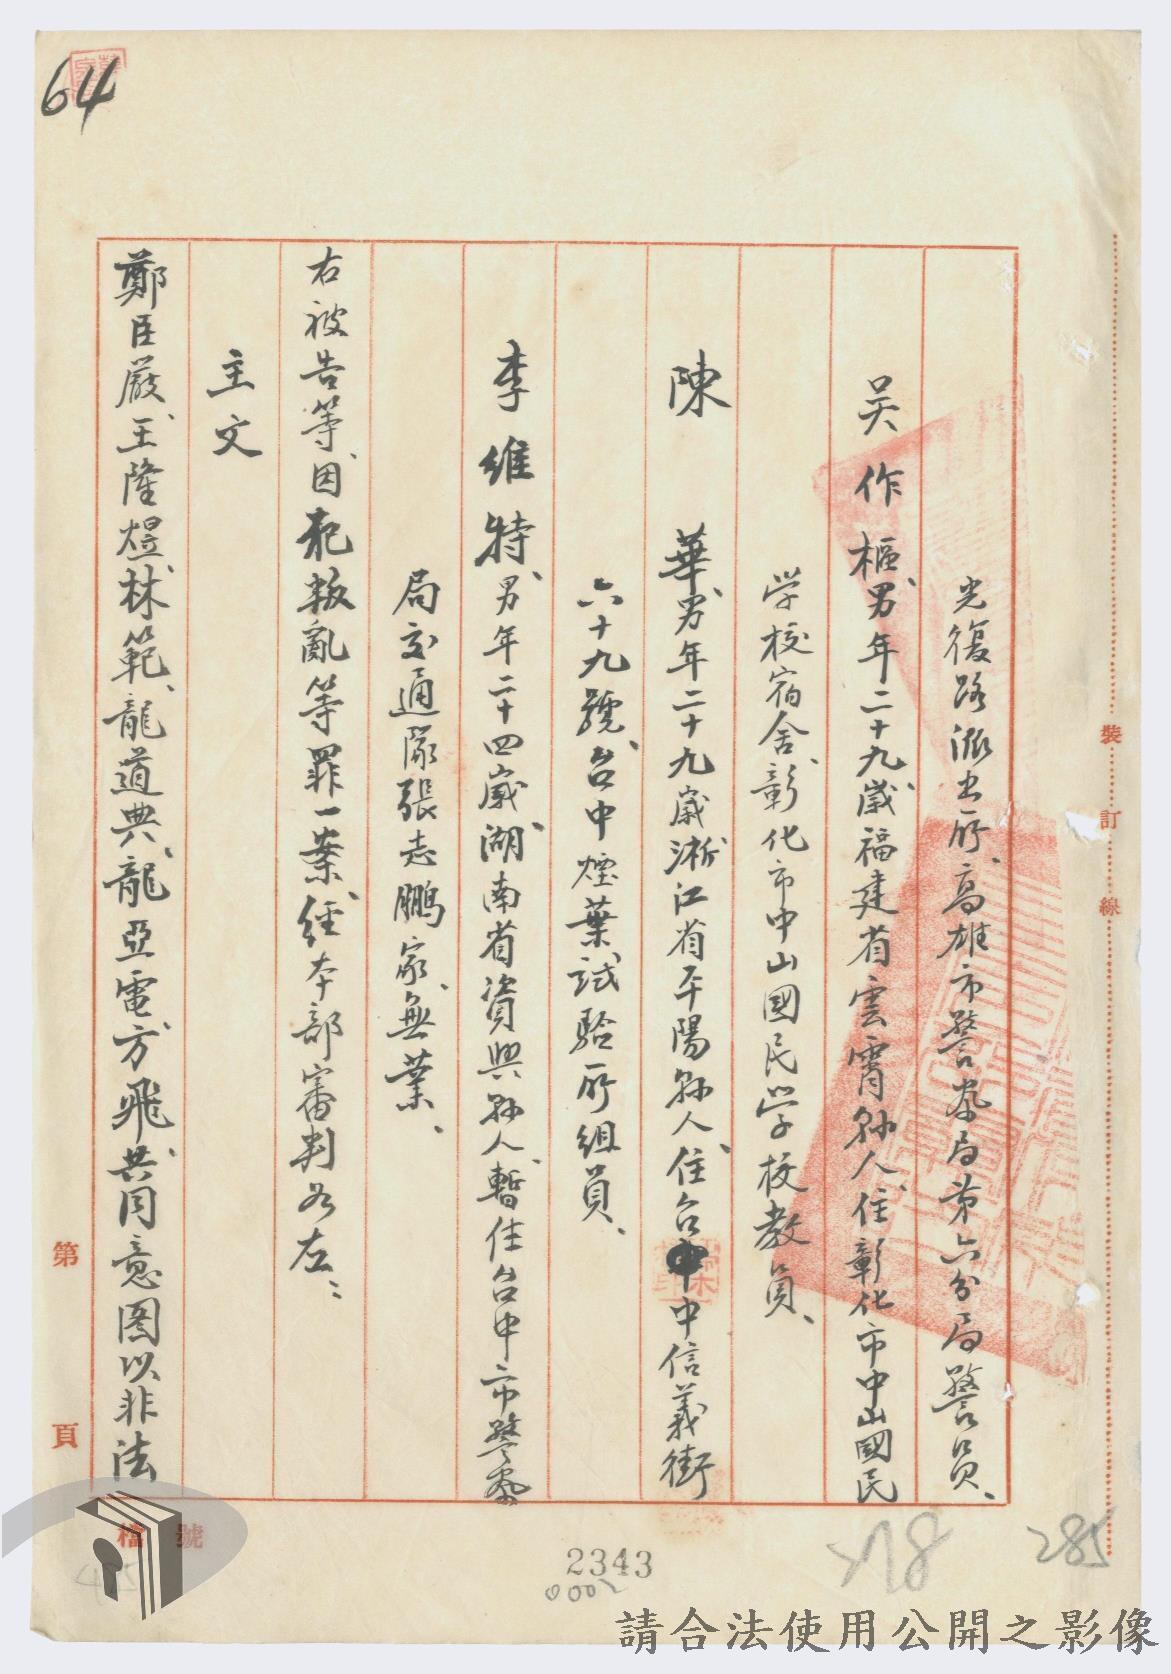 64
光復路派出所、高雄市警察局第六分局警員、
吴作樞、男、年二十九歲、福建省雲霄縣人、住彰化市中山國民
学校宿舍、彰化市中山國民学校教員、
陳　華、男、年二十九歲、浙江省平陽縣人、住台中中信義街
六十九號、台中煙葉試驗所組員、
李維特、男、年二十四歲、湖南省資興縣人、暫住台中市警察
局交通隊張志鵬家、無業、
右被告等、因犯叛亂等罪一案、經本部審判如左：
主文
鄭臣嚴、王隆煜、林範、龍道典、龍亞電、方飛、共同意圖以非法
裝訂線
第　頁
檔號
2343
0002
285
請合法使用公開之影像